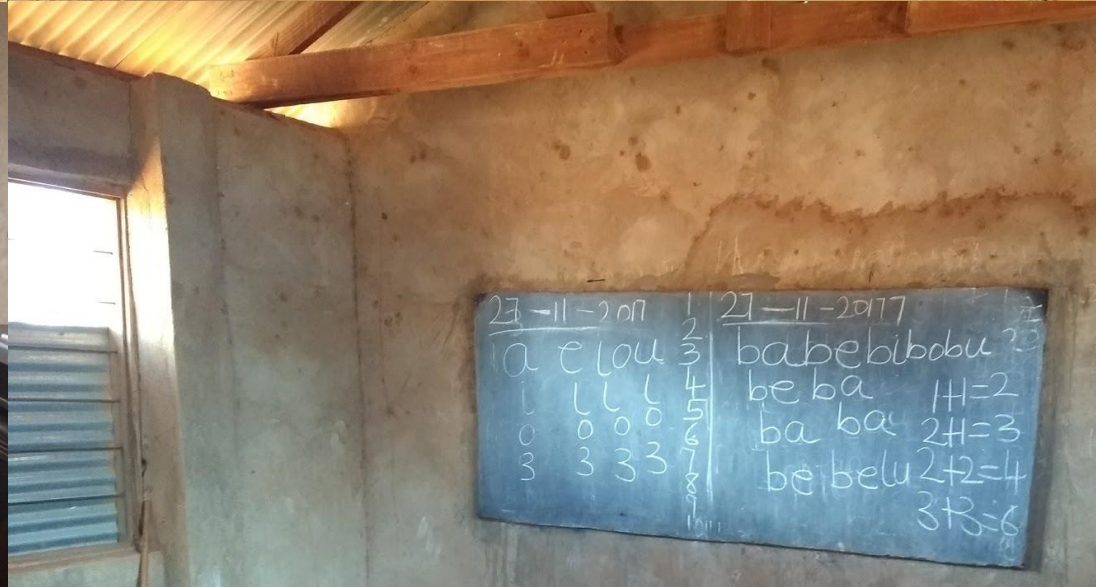 27-11-2017
a e i o u
i i i i
o o o o
3 3 3 3
1
2
3
4
5
6
7
8
9
10
27-11-20177
babebibobu
be ba
ba ba
be belu
1+1=2
2+1=3
2+2=4
3+3=6